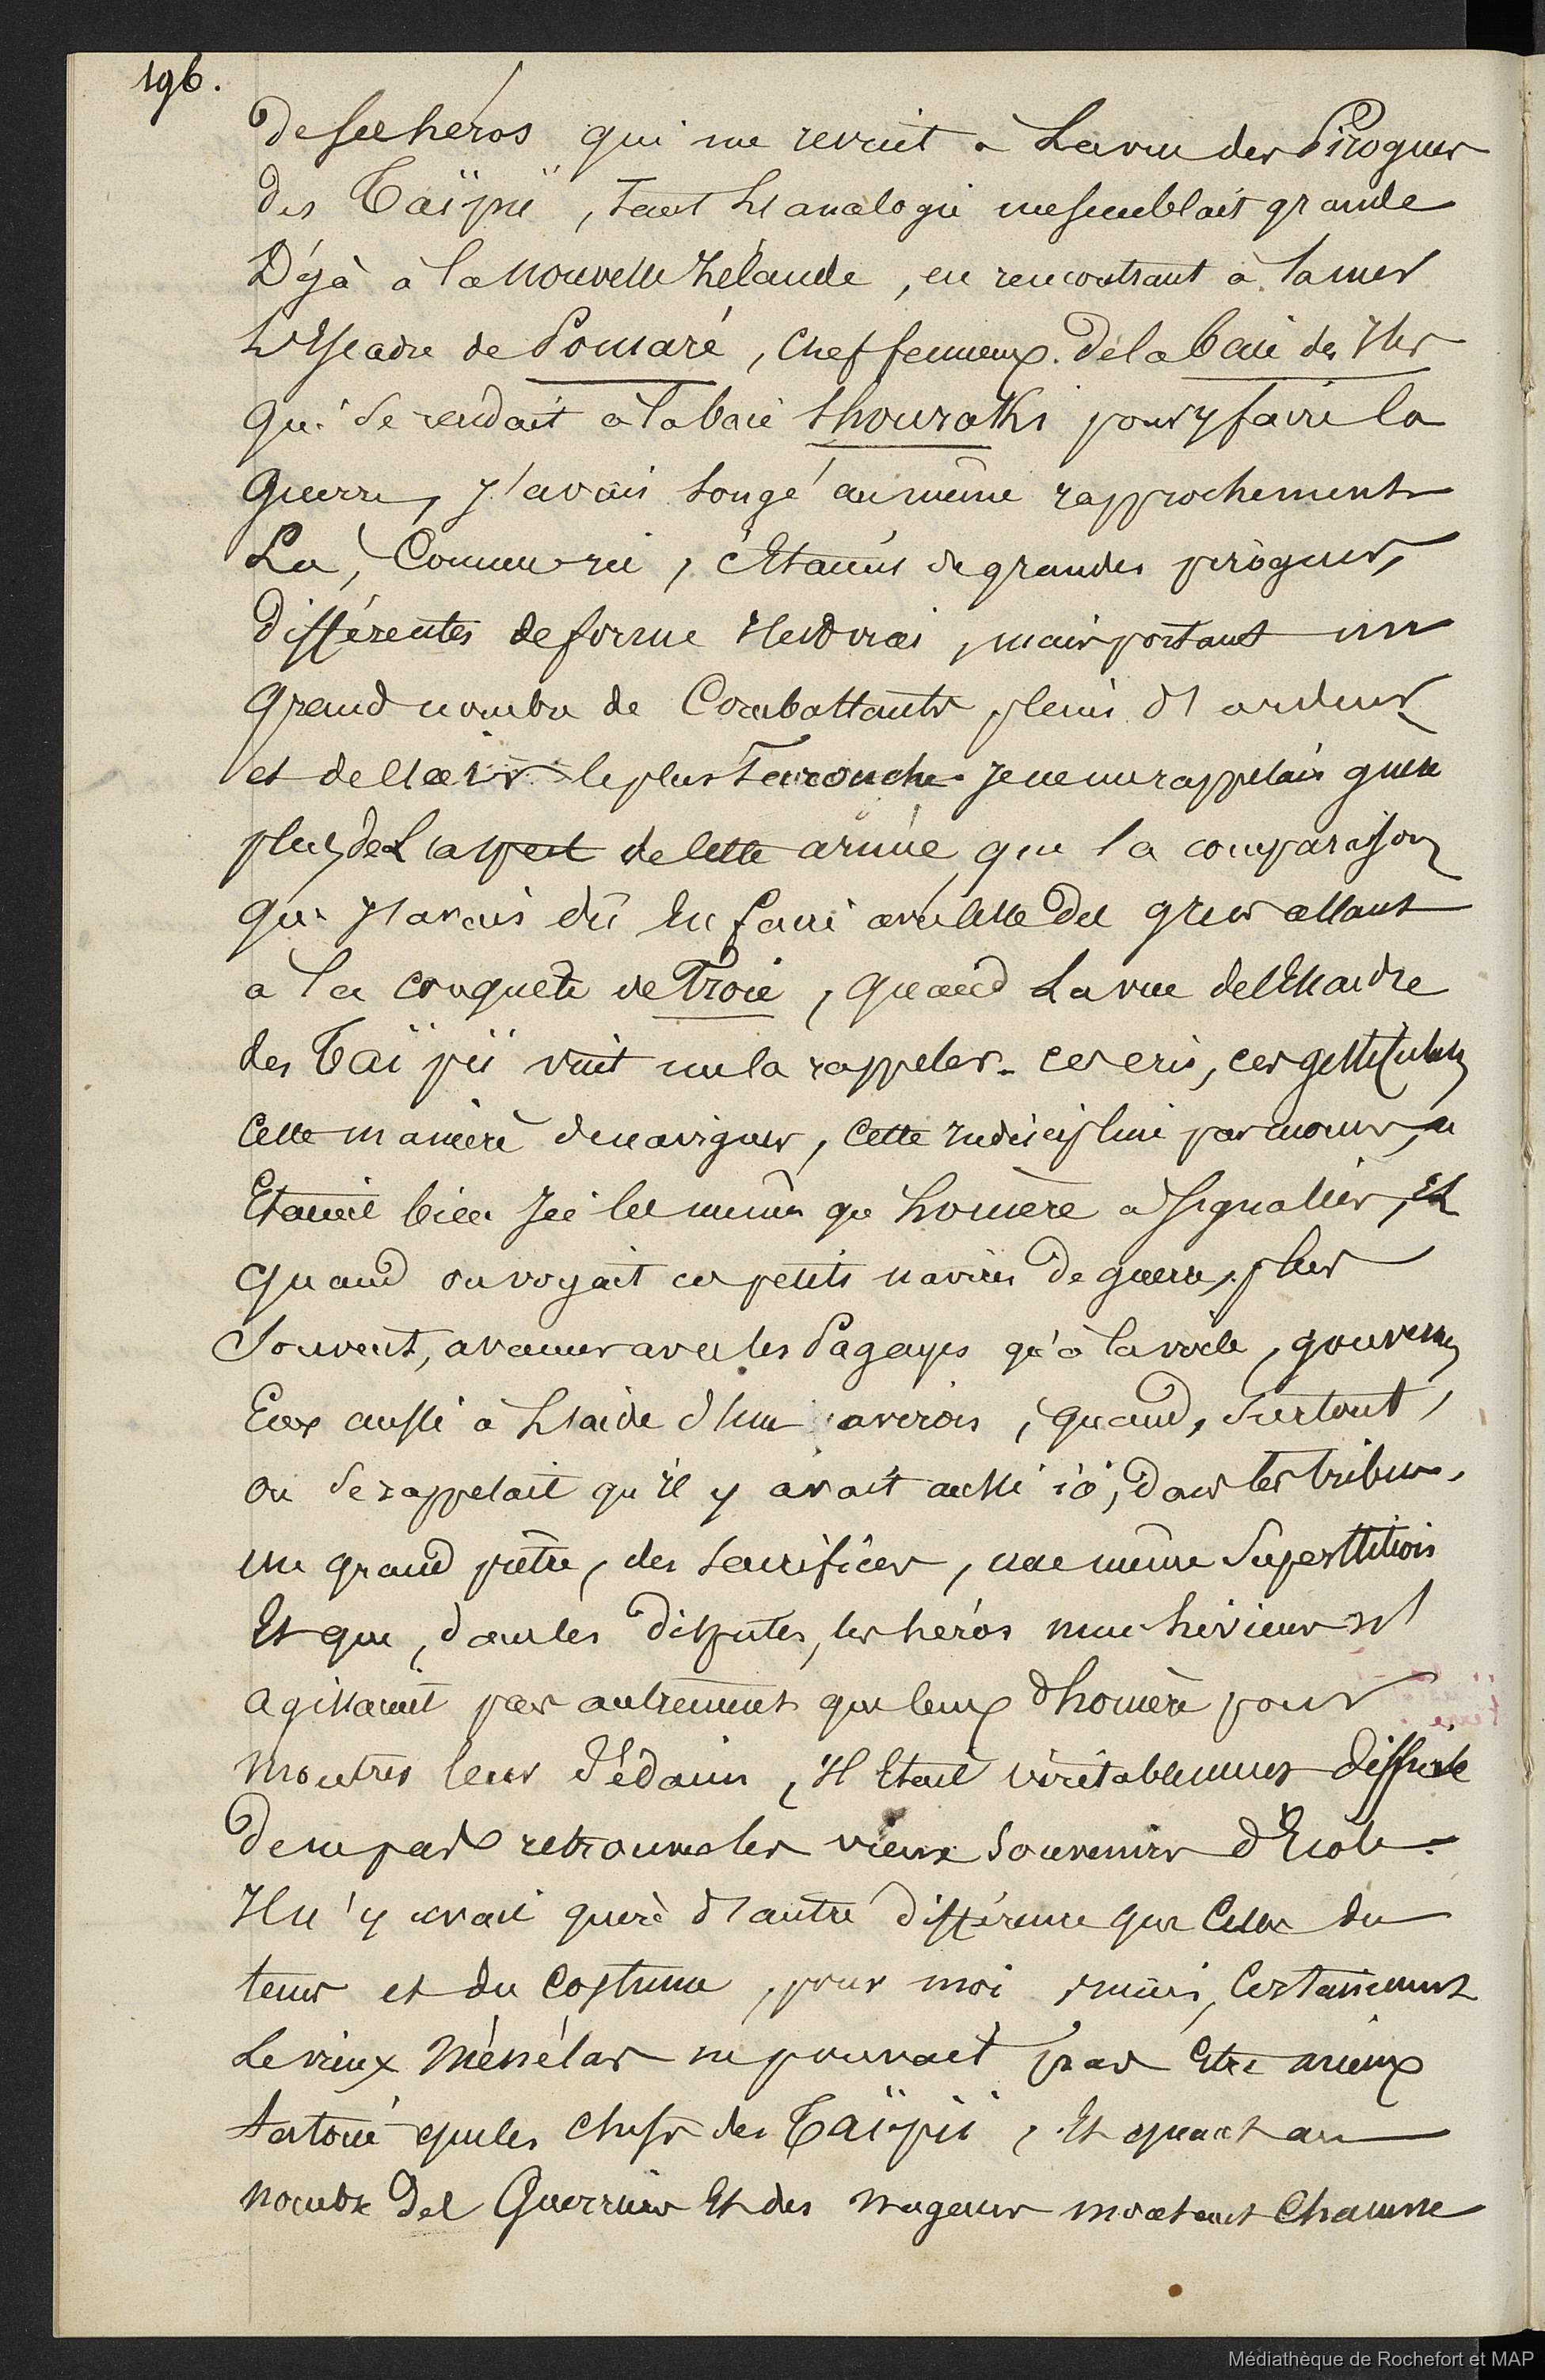 196.
de ses héros qui me revint à la vue des Pirogues
des Taïpii, tant l'analogie me semblait grande
Déjà à la nouvelle Zélande, en rencontrant à la mer
L'Escadre de Pomaré, Chef fameux de la baie des Iles
qui se rendait à la baie Shouraki pour y faire la
guerre, j'avais songé au même rapprochement
La, Comme ici, Etaient de grandes pirogues,
différentes de forme il est vrai, mais portant un
grand nombre de Combattants pleins d'ardeur
et de l'air le plus farouche. Je ne me rappelais guère
plus de L'aspect de cette armée que la comparaison
que j'avais dû en faire avec celle des grecs allant
a la conquete de Troie, quand La vue de l'Escadre
des Taïpii vint me la rappeler. Ces cris, ces
Cette manière de naviguer, cette indiscipline
Etaient bien ici les mêmes qu'homère a signalées, Et
quand on voyait ces petits navires de guerre, plus
Souvent, avancer avec les Pagayes qu'à la voile, gouvernés
Eux aussi à L'aide d'un aviron, quand, surtout,
on se rappelait qu'il y avait aussi ici, dans les tribus,
un grand prêtre, des sacrifices, une même Superstition
Et que, dans les disputes, les héros nuchiviens n'
agissaient pas autrement que ceux d'homère pour
montrer leur dédain, Il Etait véritablement difficile
de ne pas retrouver les vieux Souvenirs d'Ecole.
Il n'y avait guère d'autre différence que Celle du
tems et du Costume, pour moi mais, Certainement
Le vieux Ménélas ne pouvait pas être mieux
tatoué que les chefs des Taïpii, Et quant au
nombre des Guerriers Et des nageurs montant Chacune
Médiathèque de Rochefort et MAP